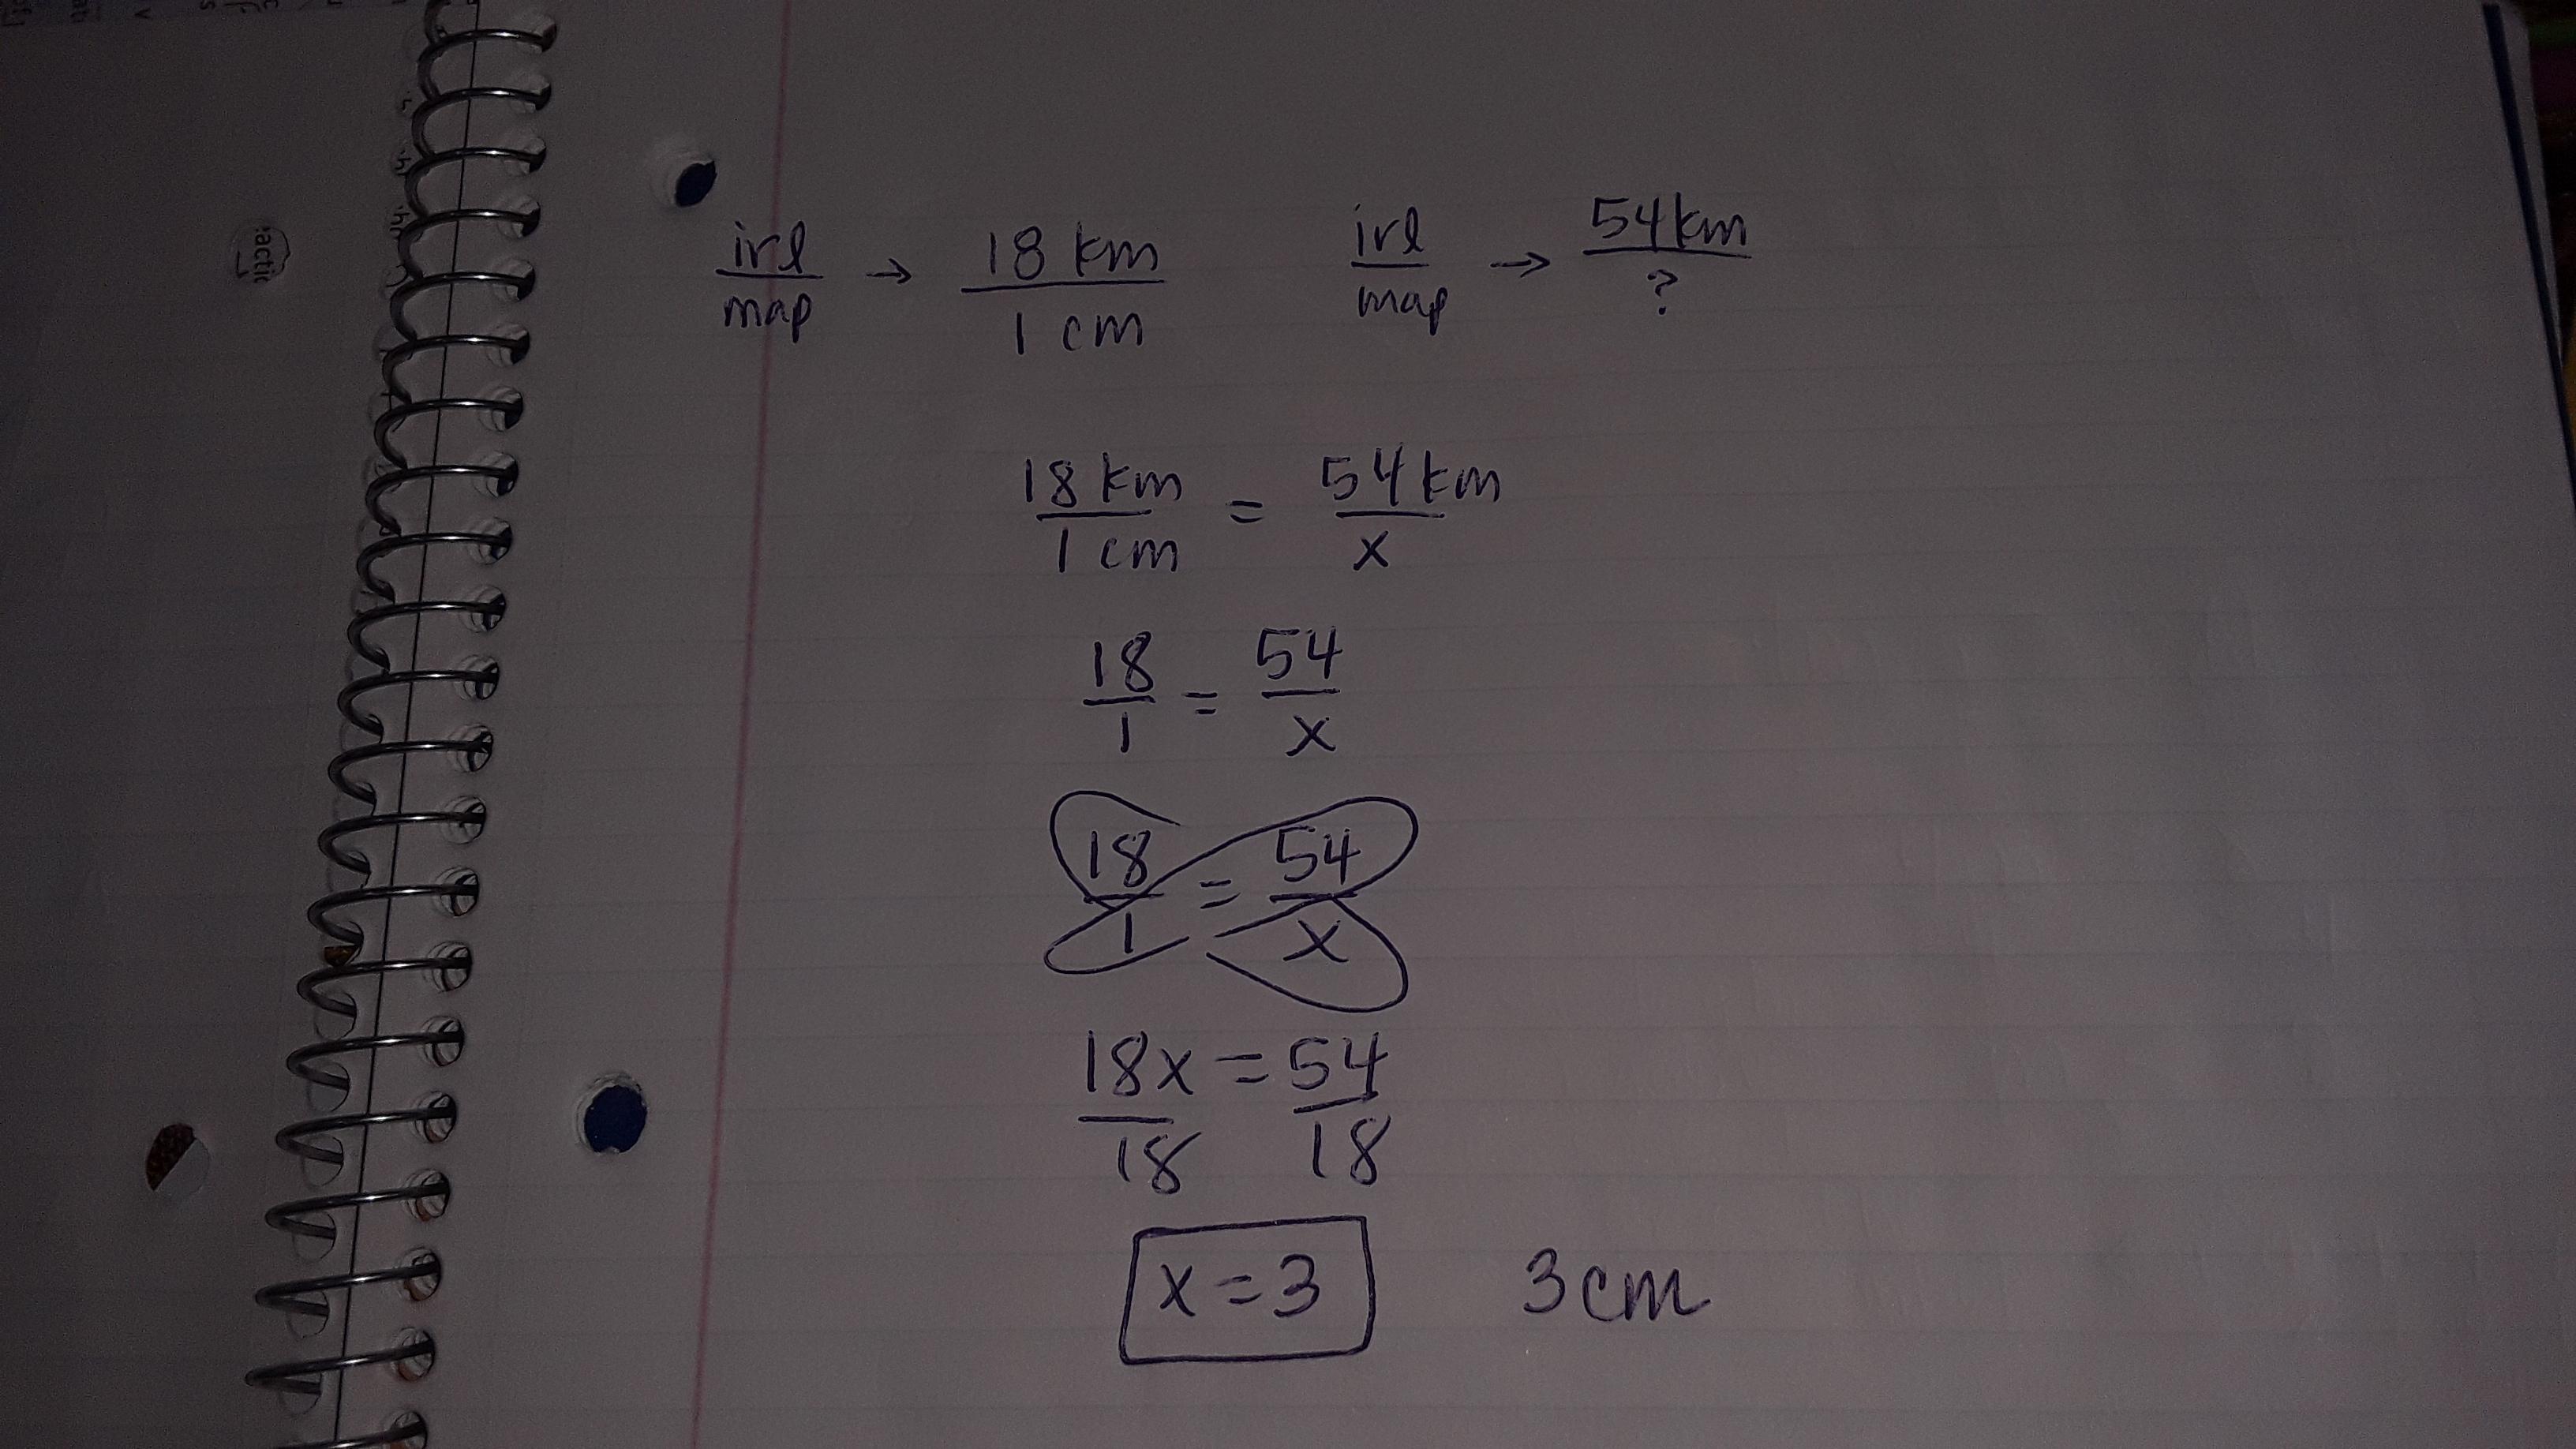 irl/map → 18 km/1 cm irl/map → 54 km/?
18 km/1 cm = 54 km/x
18/1 = 54/x
18/1 = 54/x
18x/18 = 54/18
x = 3 3 cm
actic